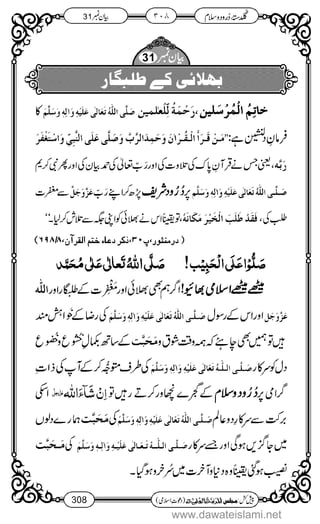 گلدستۂ درود و سلام
٣٠٨
بیان نمبر 31
بیان نمبر 31
بھلائی کے طلبگار
خاتِمُ الْمُرْسَلین، رَحْمَۃٌ لِّلْعٰلمین صَلَّی اللہُ تَعَالٰی عَلَیْہِ وَاٰلِہٖ وَسَلَّمَ کا
فرمانِ دلنشین ہے: ”مَنْ قَرَأَ الْقُرْاٰنَ وَحَمِدَ الرَّبَّ وَصَلّٰی عَلَی النَّبِیِّ وَاسْتَغْفَرَ
رَبَّہ، یعنی جس نے قرآنِ پاک کی تلاوت کی اور ربّ تعالیٰ کی حمد بیان کی اور پھر نبی کریم
صَلَّی اللہُ تَعَالٰی عَلَیْہِ وَاٰلِہٖ وَسَلَّمَ پر دُرُود شریف پڑھ کر اپنے ربّ عَزَّوَجَلَّ سے مغفرت
طلب کی، فَقَدْ طَلَبَ الْخَیْرَ مَکَانَہ، تو یقیناً اس نے بھلائی کو اپنی جگہ سے تلاش کرلیا۔“
(درمنثور، پ٣٠، ذکر دعاء ختم القرآن، ٦٩٨/٨)
صَلُّوْا عَلَی الْحَبِیْب! صَلَّی اللہُ تعالیٰ عَلٰی مُحَمَّد
میٹھے میٹھے اسلامی بھائیو! اگر ہم بھی بھلائی اور مَغْفِرت کے طلبگار اور اللہ
عَزَّوَجَلَّ اور اس کے رسول صَلَّی اللہُ تَعَالٰی عَلَیْہِ وَاٰلِہٖ وَسَلَّمَ کی رضا کے خواہش مند
ہیں تو ہمیں بھی چاہئے کہ ہمہ وقت ذوق و مَحَبَّت کے ساتھ بکمالِ خشوع و خضوع
دل کو سرکار صَلَّی اللہُ تَعَالٰی عَلَیْہِ وَاٰلِہٖ وَسَلَّمَ کی طرف مُتَوَجِّہ کر کے آپ کی ذاتِ
گرامی پر دُرُود و سلام کے گجرے نچھاور کرتے رہیں تو اِنْ شَآءَ اللہ عَزَّوَجَلَّ اسکی
برکت سے سرکارِ دو عالم صَلَّی اللہُ تَعَالٰی عَلَیْہِ وَاٰلِہٖ وَسَلَّمَ کی مَحَبَّت ہمارے دلوں
میں جاگزیں ہوگی اور جسے سرکار صَلَّی اللہُ تَعَالٰی عَلَیْہِ وَاٰلِہٖ وَسَلَّمَ کی مَحَبَّت
نصیب ہوگئی یقیناً وہ دنیا و آخرت میں سُرخرو ہوگیا۔
308
پیش کش: مجلس المدینۃ العلمیۃ (دعوتِ اسلامی)
www.dawateislami.net